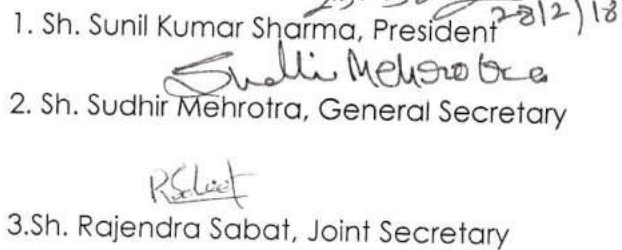 28/2/18
1. Sh. Sunil Kumar Sharma, President
Mehrotra
2. Sh. Sudhir Mehrotra, General Secretary
3.Sh. Rajendra Sabat, Joint Secretary